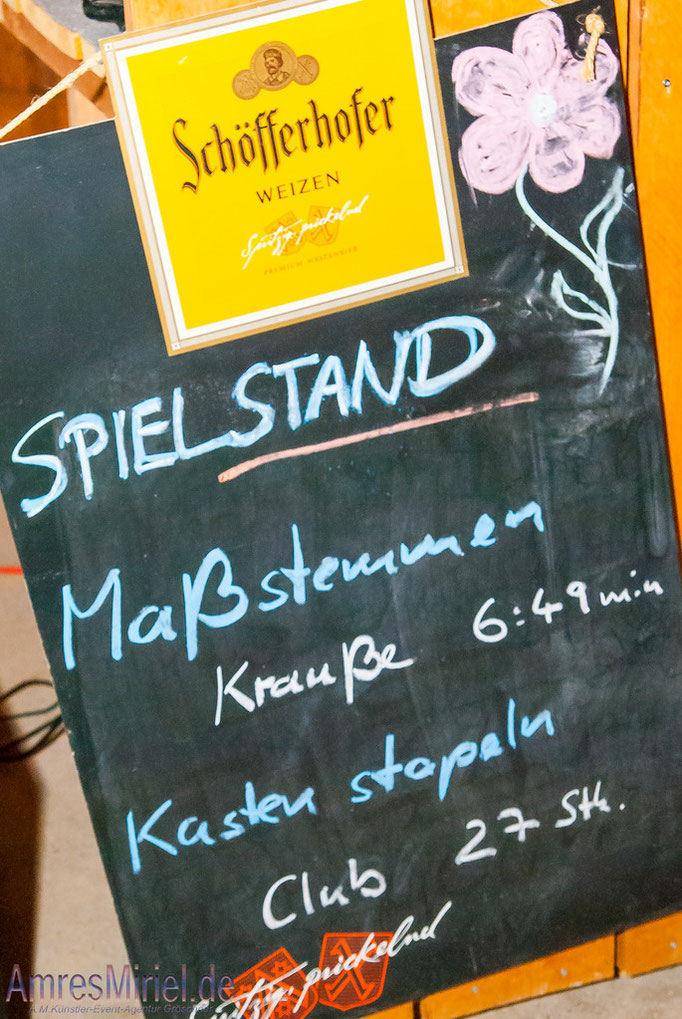 Schöfferhofer
WEIZEN
Spritzig, prickelnd
PREMIUM WEIZENBIER
SPIELSTAND
Maßstemmen
Krauße 6:49 min
Kasten stapeln
Club 27 Stk.
Spritzig, prickelnd
AmresMiriel.de
A.M.Künstler-Event-Agentur Gröschel